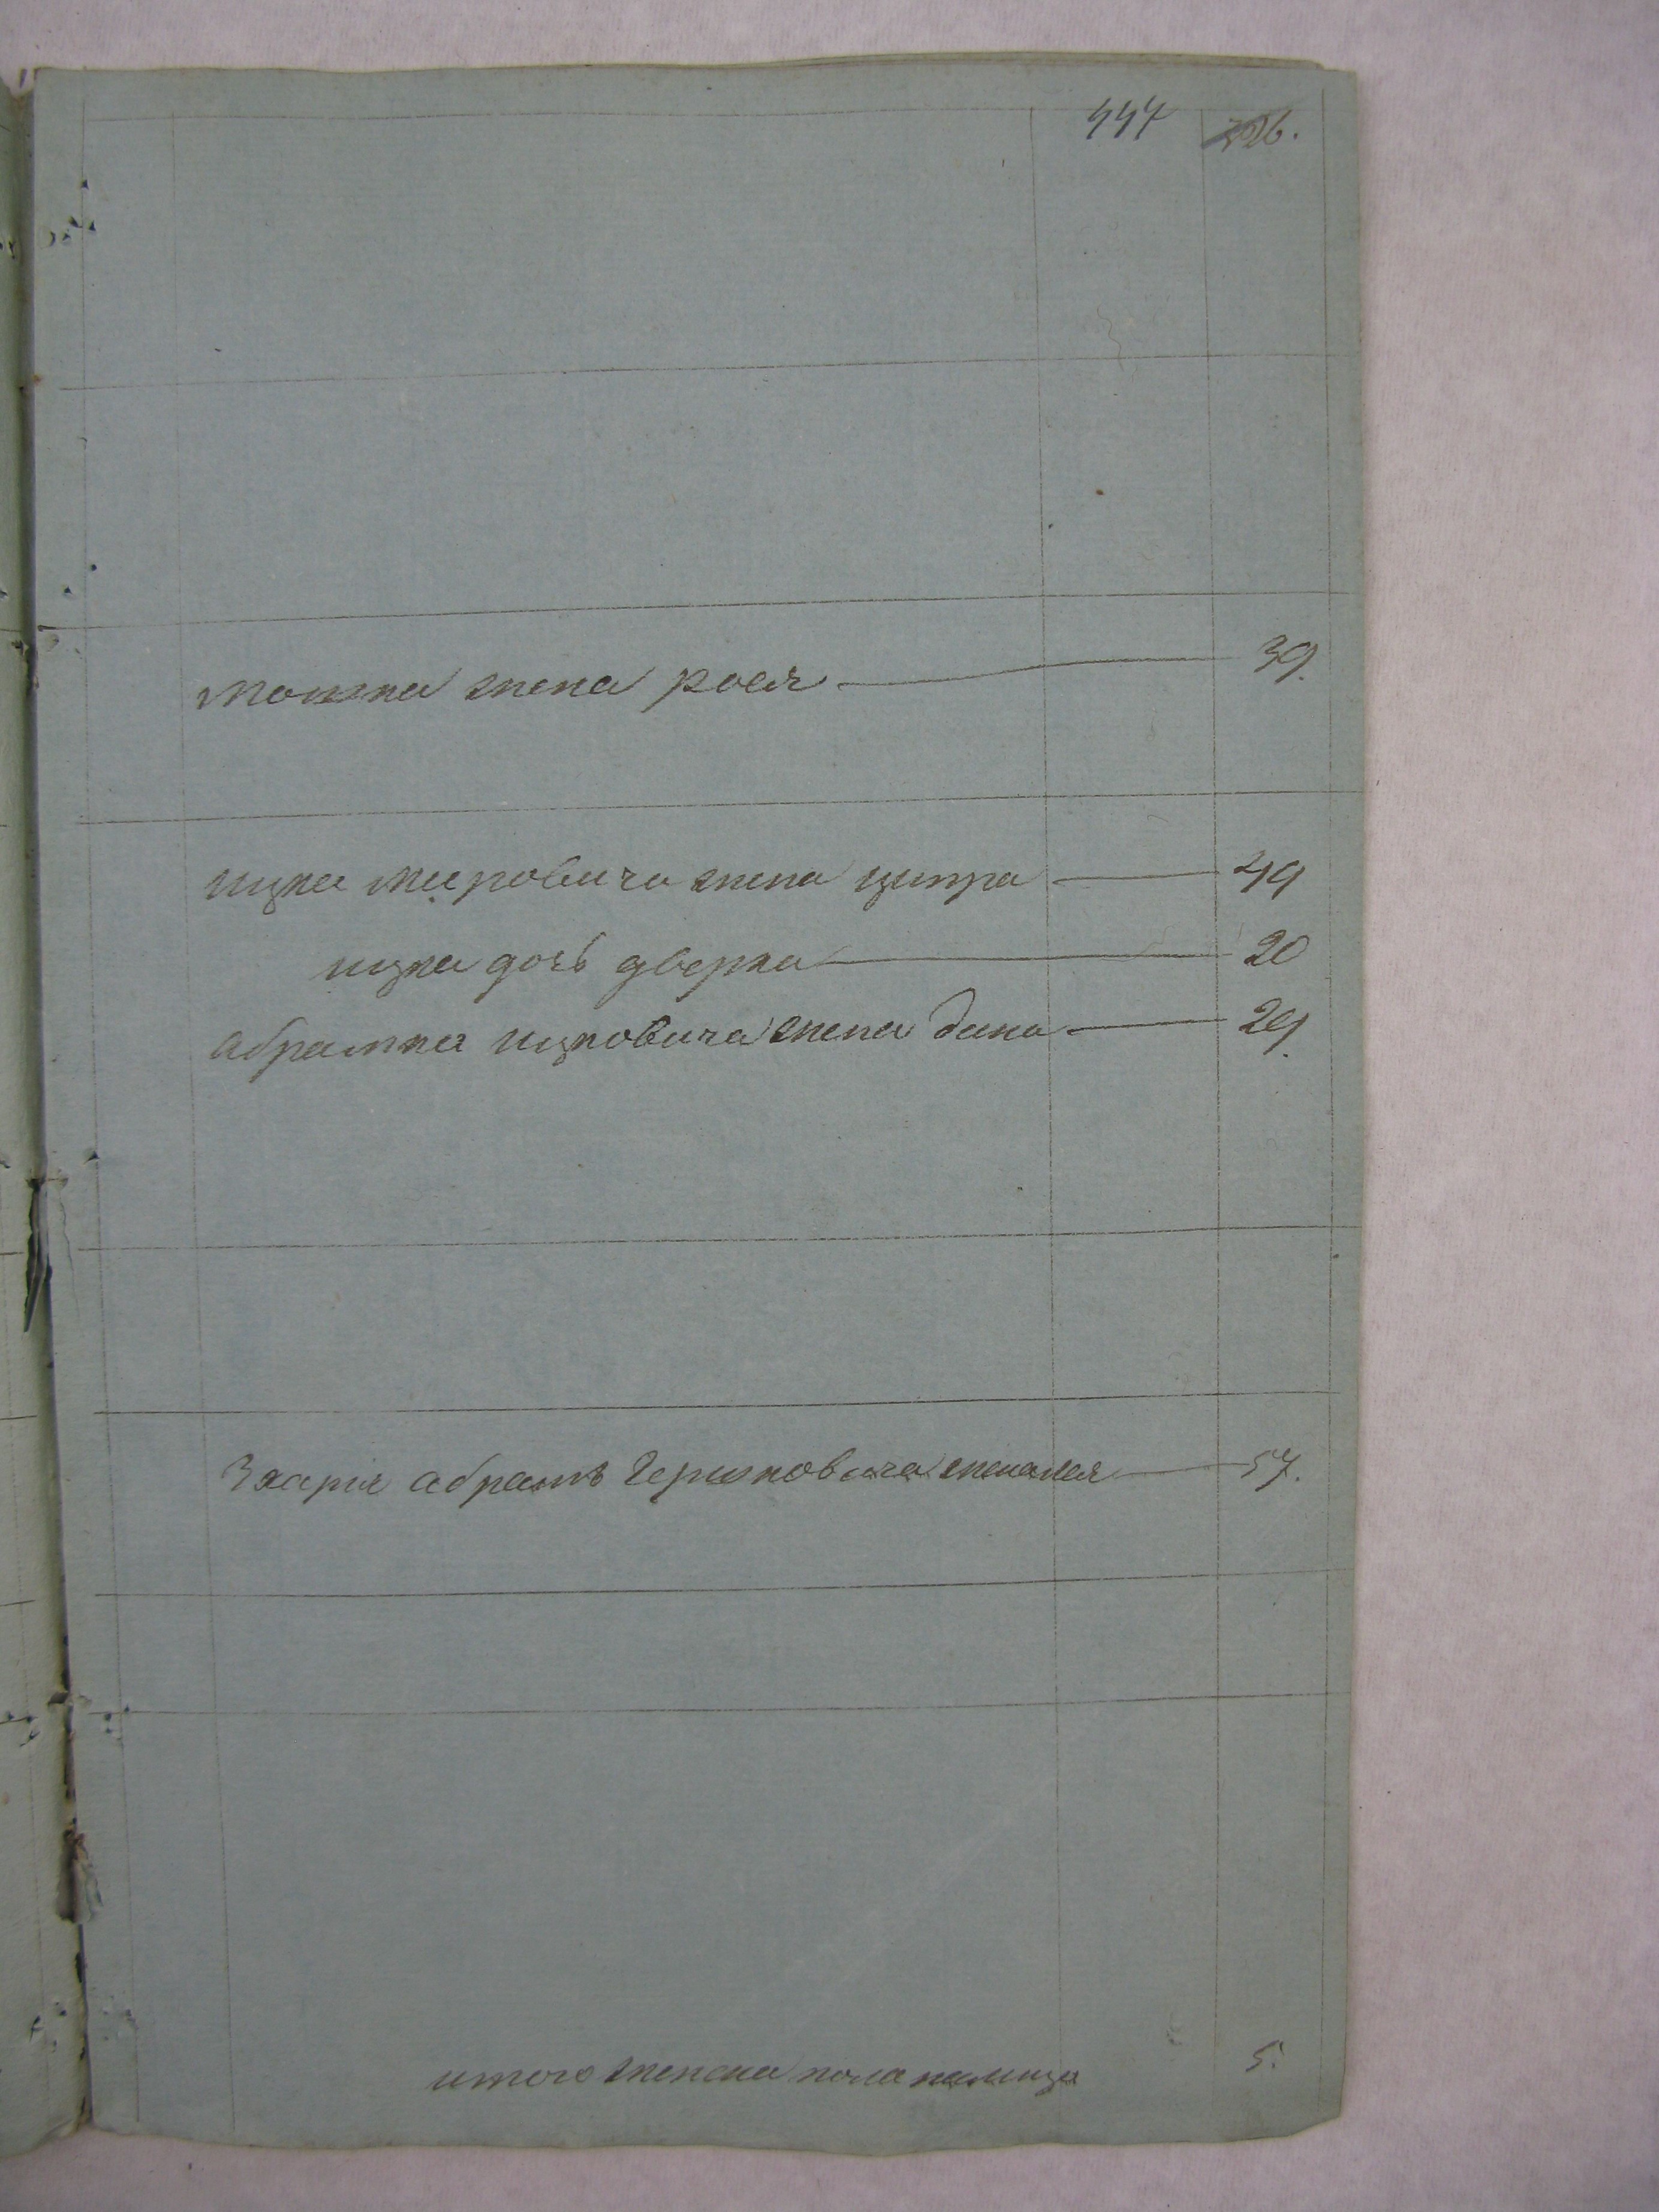 447 326.
мошка жена рося 39.
ицка мееровича жена ципра 49
ицка дочь дверка 20
абрамка ицковича жена дина 29.
Зхарія абрамъ Гершковича жена лея 57.
итого женска пола налицо 5.